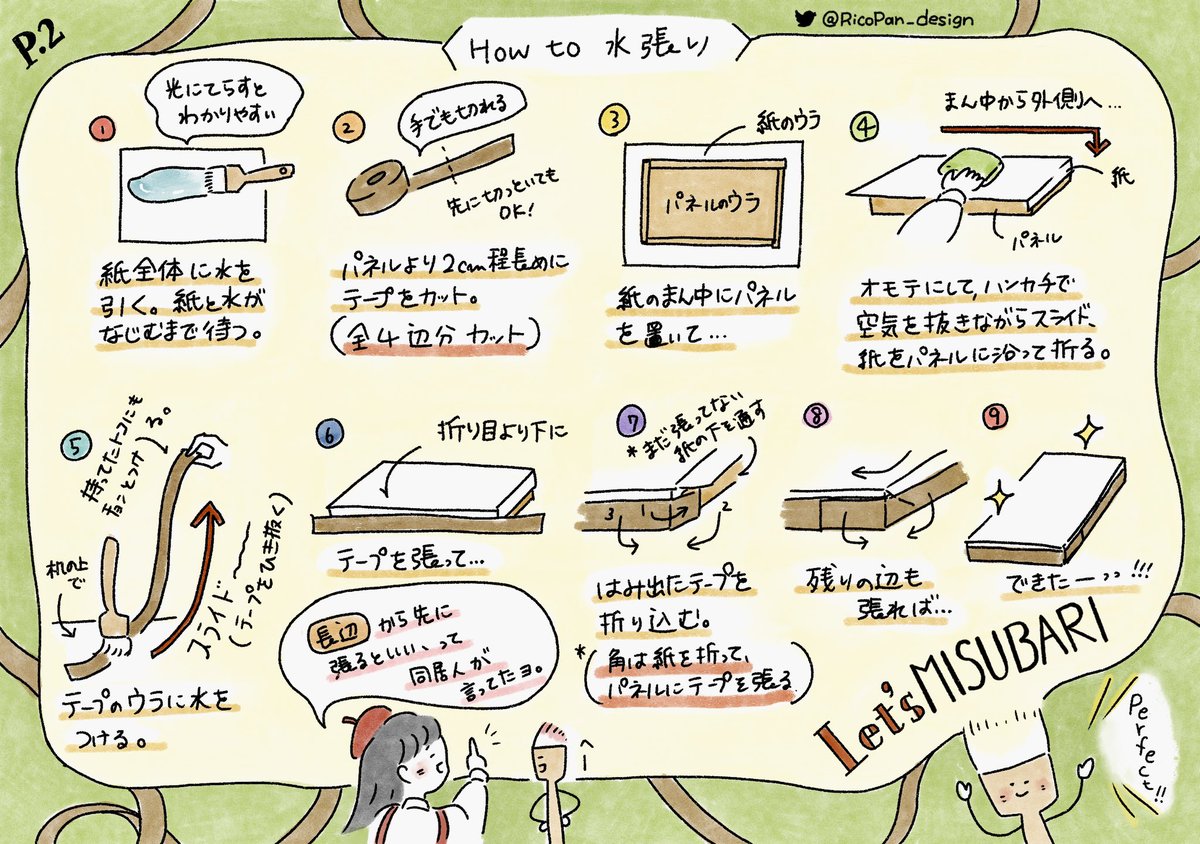 P.2
@RicoPan_design
How to 水張り
①
光にてらすと
わかりやすい
紙全体に水を
引く。紙と水が
なじむまで待つ。
②
手でも切れる
先に切っといても
OK!
パネルより2cm程長めに
テープをカット。
(全4辺分カット)
③
紙のウラ
パネルのウラ
紙のまん中にパネル
を置いて…
④
まん中から外側へ…
紙
パネル
オモテにして,ハンカチで
空気を抜きながらスライド、
紙をパネルに沿って折る。
⑤
持ってたトコにも
ちょこっとつける。
机の上
で
スライド
(テープをひき抜く)
テープのウラに水を
つける。
⑥
折り目より下に
テープを張って…
長辺から先に
張るといい、って
同居人が
言ってたヨ。
⑦
*まだ張ってない
紙の下を通す
3
1
2
はみ出たテープを
折り込む。
*(角は紙を折って、
パネルにテープを張る)
⑧
残りの辺も
張れば…
⑨
できたーっっ!!!
Let's MISUBARI
Perfect!!